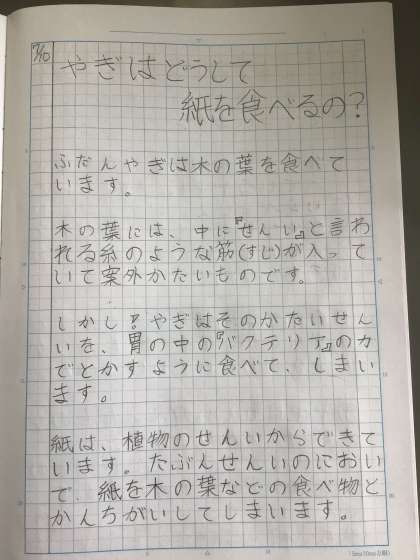 7/10
やぎはどうして
紙を食べるの?
ふだんやぎは木の葉を食べて
います。
木の葉には、中に『せんい』と言わ
れる糸のような筋(すじ)が入って
いて案外かたいものです。
しかし!やぎはそのかたいせん
いを、胃の中の『バクテリア』の力
でとかすように食べて、しまい
ます。
紙は、植物のせんいからできて
います。たぶんせんいのにおい
で、紙を木の葉などの食べ物と
かんちがいしてしまいます。